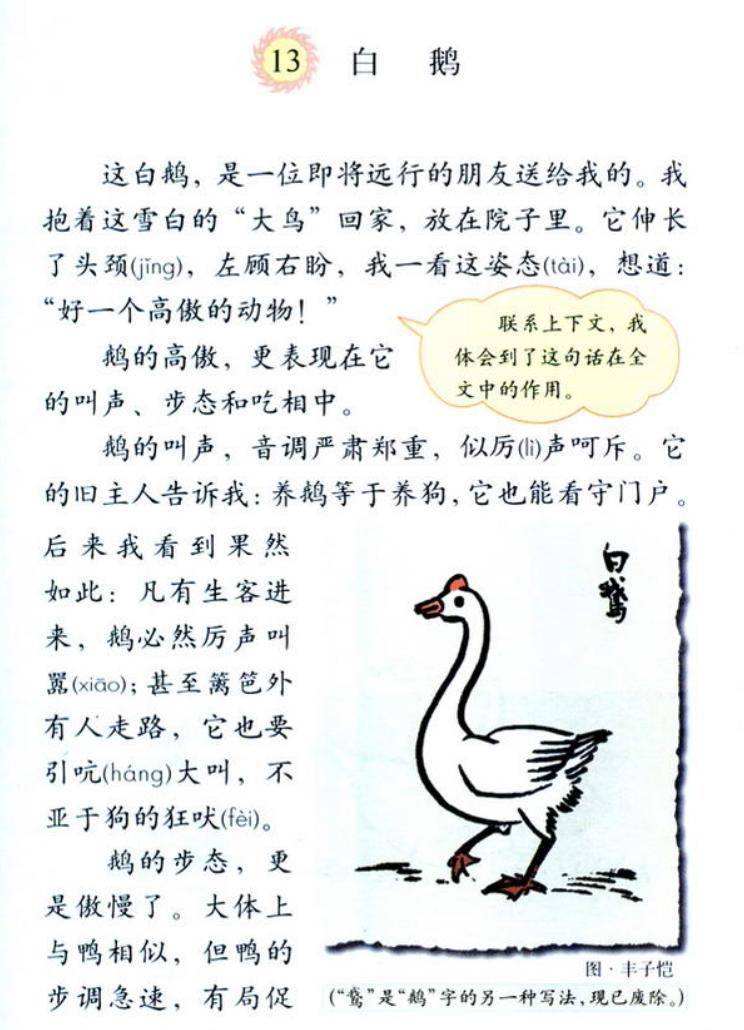 13 白 鹅
这白鹅，是一位即将远行的朋友送给我的。我
抱着这雪白的“大鸟”回家，放在院子里。它伸长
了头颈(jǐng)，左顾右盼，我一看这姿态(tài)，想道：
“好一个高傲的动物！”
联系上下文，我
体会到了这句话在全
文中的作用。
鹅的高傲，更表现在它
的叫声、步态和吃相中。
鹅的叫声，音调严肃郑重，似厉(lì)声呵斥。它
的旧主人告诉我：养鹅等于养狗，它也能看守门户。
后来我看到果然
如此：凡有生客进
来，鹅必然厉声叫
嚣(xiāo)；甚至篱笆外
有人走路，它也要
引吭(háng)大叫，不
亚于狗的狂吠(fèi)。
鹅的步态，更
是傲慢了。大体上
与鸭相似，但鸭的
步调急速，有局促
白鵞
图·丰子恺
(“鵞”是“鹅”字的另一种写法，现已废除。)